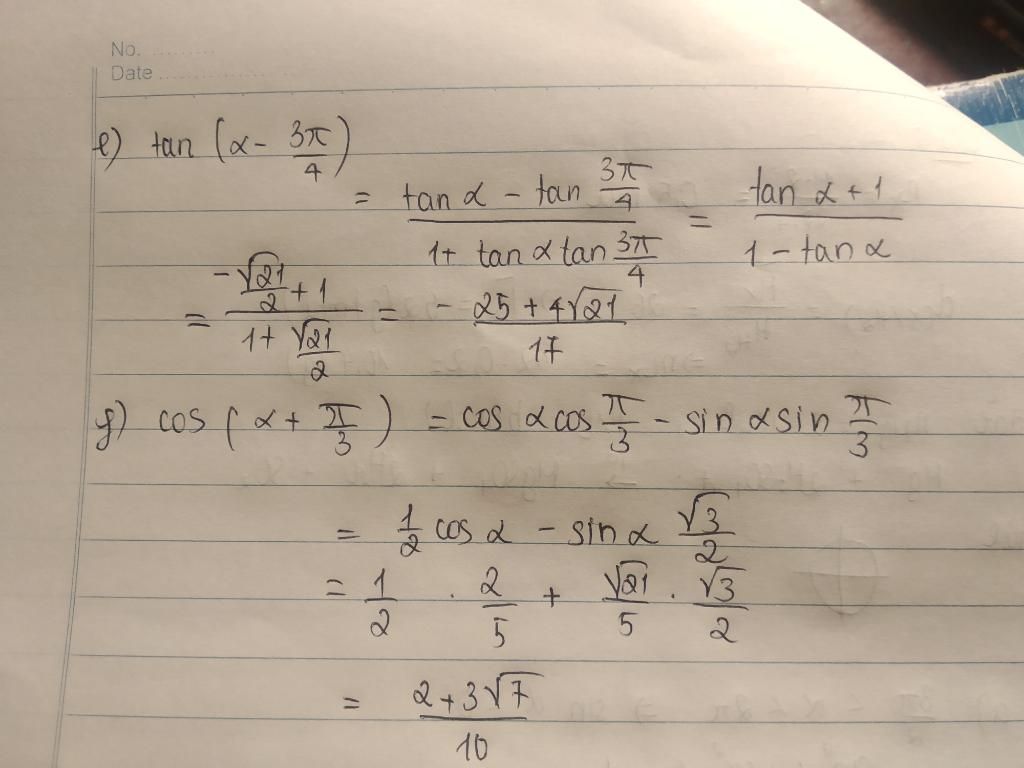 No. ..........
Date ....................
e) tan (α - 3π/4)
= (tan α - tan 3π/4)/(1 + tan α tan 3π/4) = (tan α + 1)/(1 - tan α)
= (-√21/2 + 1)/(1 + √21/2) = - (25 + 4√21)/17
g) cos (α + π/3) = cos α cos π/3 - sin α sin π/3
= 1/2 cos α - sin α √3/2
= 1/2 . 2/5 + √21/5 . √3/2
= (2 + 3√7)/10